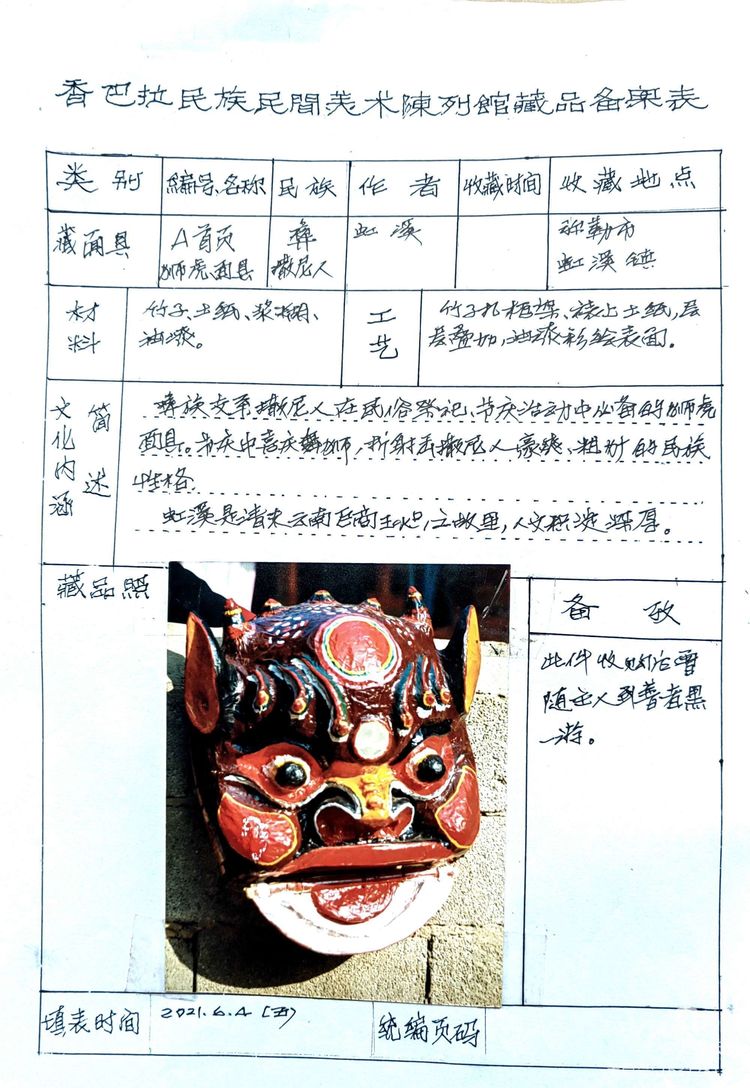 香巴拉民族民間美术陳列館藏品备案表
类别 编号、名称 民族 作者 收藏时间 收藏地点
藏面具 A首页 彝 虹溪 弥勒市
狮虎面具 撒尼人 虹溪镇
材料 竹子、土纸、浆糊、 工艺 竹子扎框架、裱上土纸,层
油漆。 层叠加,油漆彩绘表面。
文化内涵 简述 彝族支系撒尼人在民俗祭祀、节庆活动中必备的狮虎
面具。节庆中喜庆舞狮,折射出撒尼人豪爽、粗犷的民族
性格.
虹溪是清末云南巨商王炽之故里,人文积淀深厚。
藏品照 备攷
此件收购后曾
随主人到普者黑
一游。
填表时间 2021.6.4(五) 统编页码